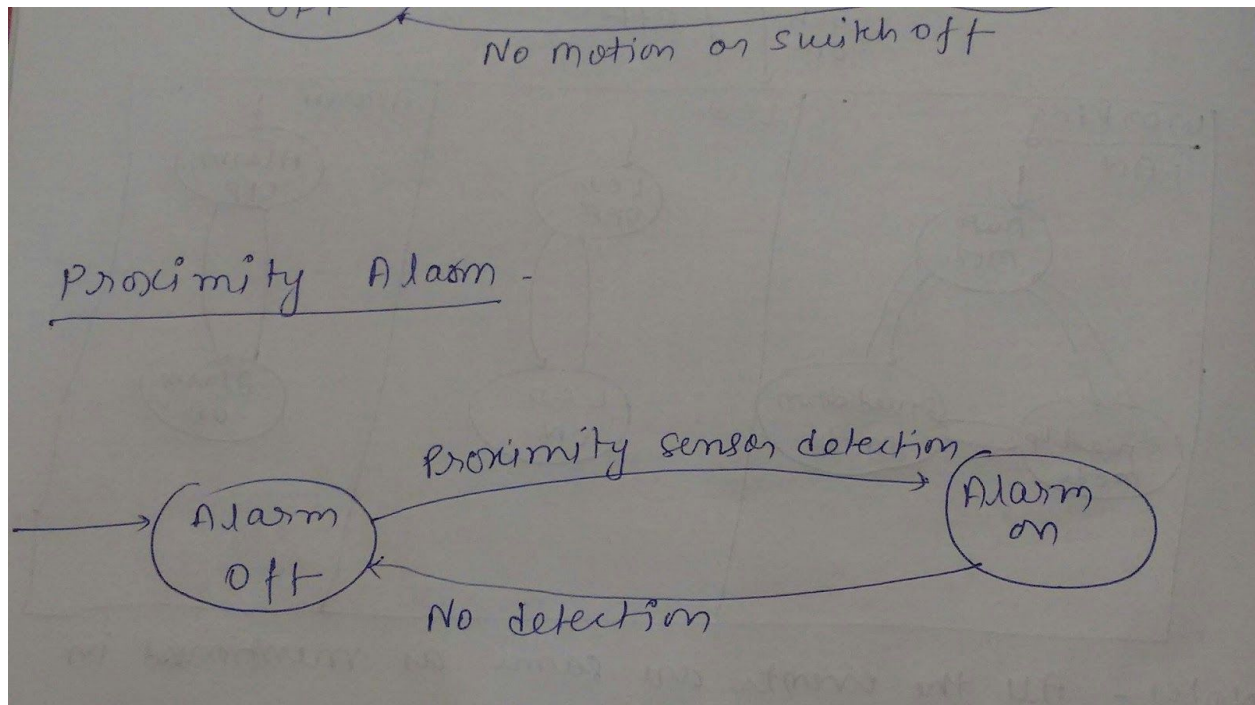 OFF
No motion or switch off
Proximity Alarm -
Proximity sensor detection
Alarm
on
Alarm
Off
No detection